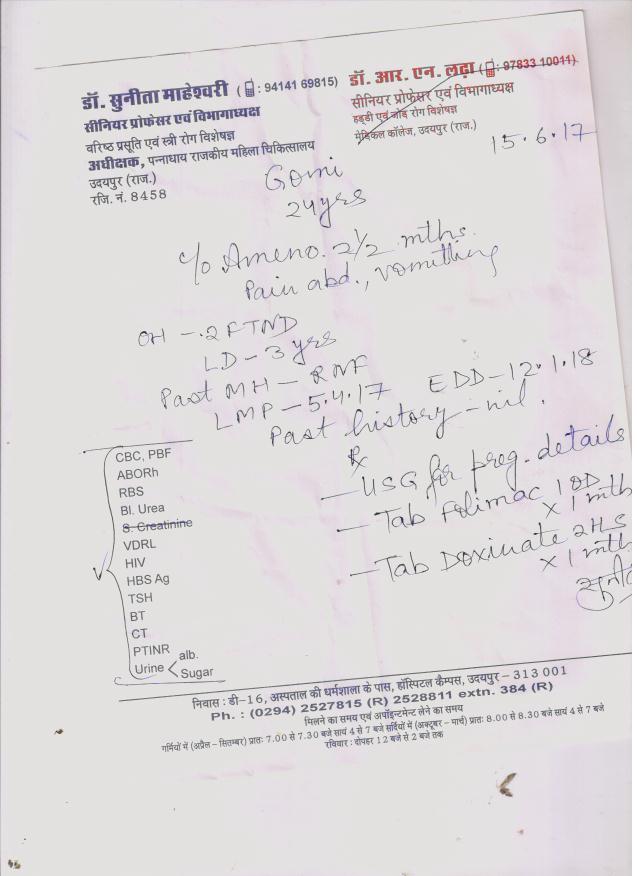 डॉ. सुनीता माहेश्वरी ( : 94141 69815)
सीनियर प्रोफेसर एवं विभागाध्यक्ष
वरिष्ठ प्रसूति एवं स्त्री रोग विशेषज्ञ
अधीक्षक, पन्नाधाय राजकीय महिला चिकित्सालय
उदयपुर (राज.)
रजि. नं. 8458
डॉ. आर. एन. लढ़ा ( : 97833 10011)
सीनियर प्रोफेसर एवं विभागाध्यक्ष
हड्डी एवं जोड़ रोग विशेषज्ञ
मेडिकल कॉलेज, उदयपुर (राज.)
15.6.17
Gomi
24 yrs
c/o Ameno. 2 1/2 mths.
Pain abd., vomitting
OH - 2 FTND
LD - 3 yrs
Past MH - RNF
LMP - 5.4.17 EDD - 12.1.18
Past history - nil.
Rx
- USG for preg. details
- Tab Folimac 1 OD
x 1 mth
- Tab Doxinate 2 HS
x 1 mth
CBC, PBF
ABORh
RBS
Bl. Urea
S. Creatinine
VDRL
HIV
HBS Ag
TSH
BT
CT
PTINR
Urine < alb.
Sugar
निवास : डी-16, अस्पताल की धर्मशाला के पास, हॉस्पिटल कैम्पस, उदयपुर - 313 001
Ph. : (0294) 2527815 (R) 2528811 extn. 384 (R)
मिलने का समय एवं अपॉइन्टमेन्ट लेने का समय
गर्मियों में (अप्रैल - सितम्बर) प्रातः 7.00 से 7.30 बजे सायं 4 से 7 बजे सर्दियों में (अक्टूबर - मार्च) प्रातः 8.00 से 8.30 बजे सायं 4 से 7 बजे
रविवार : दोपहर 12 बजे से 2 बजे तक